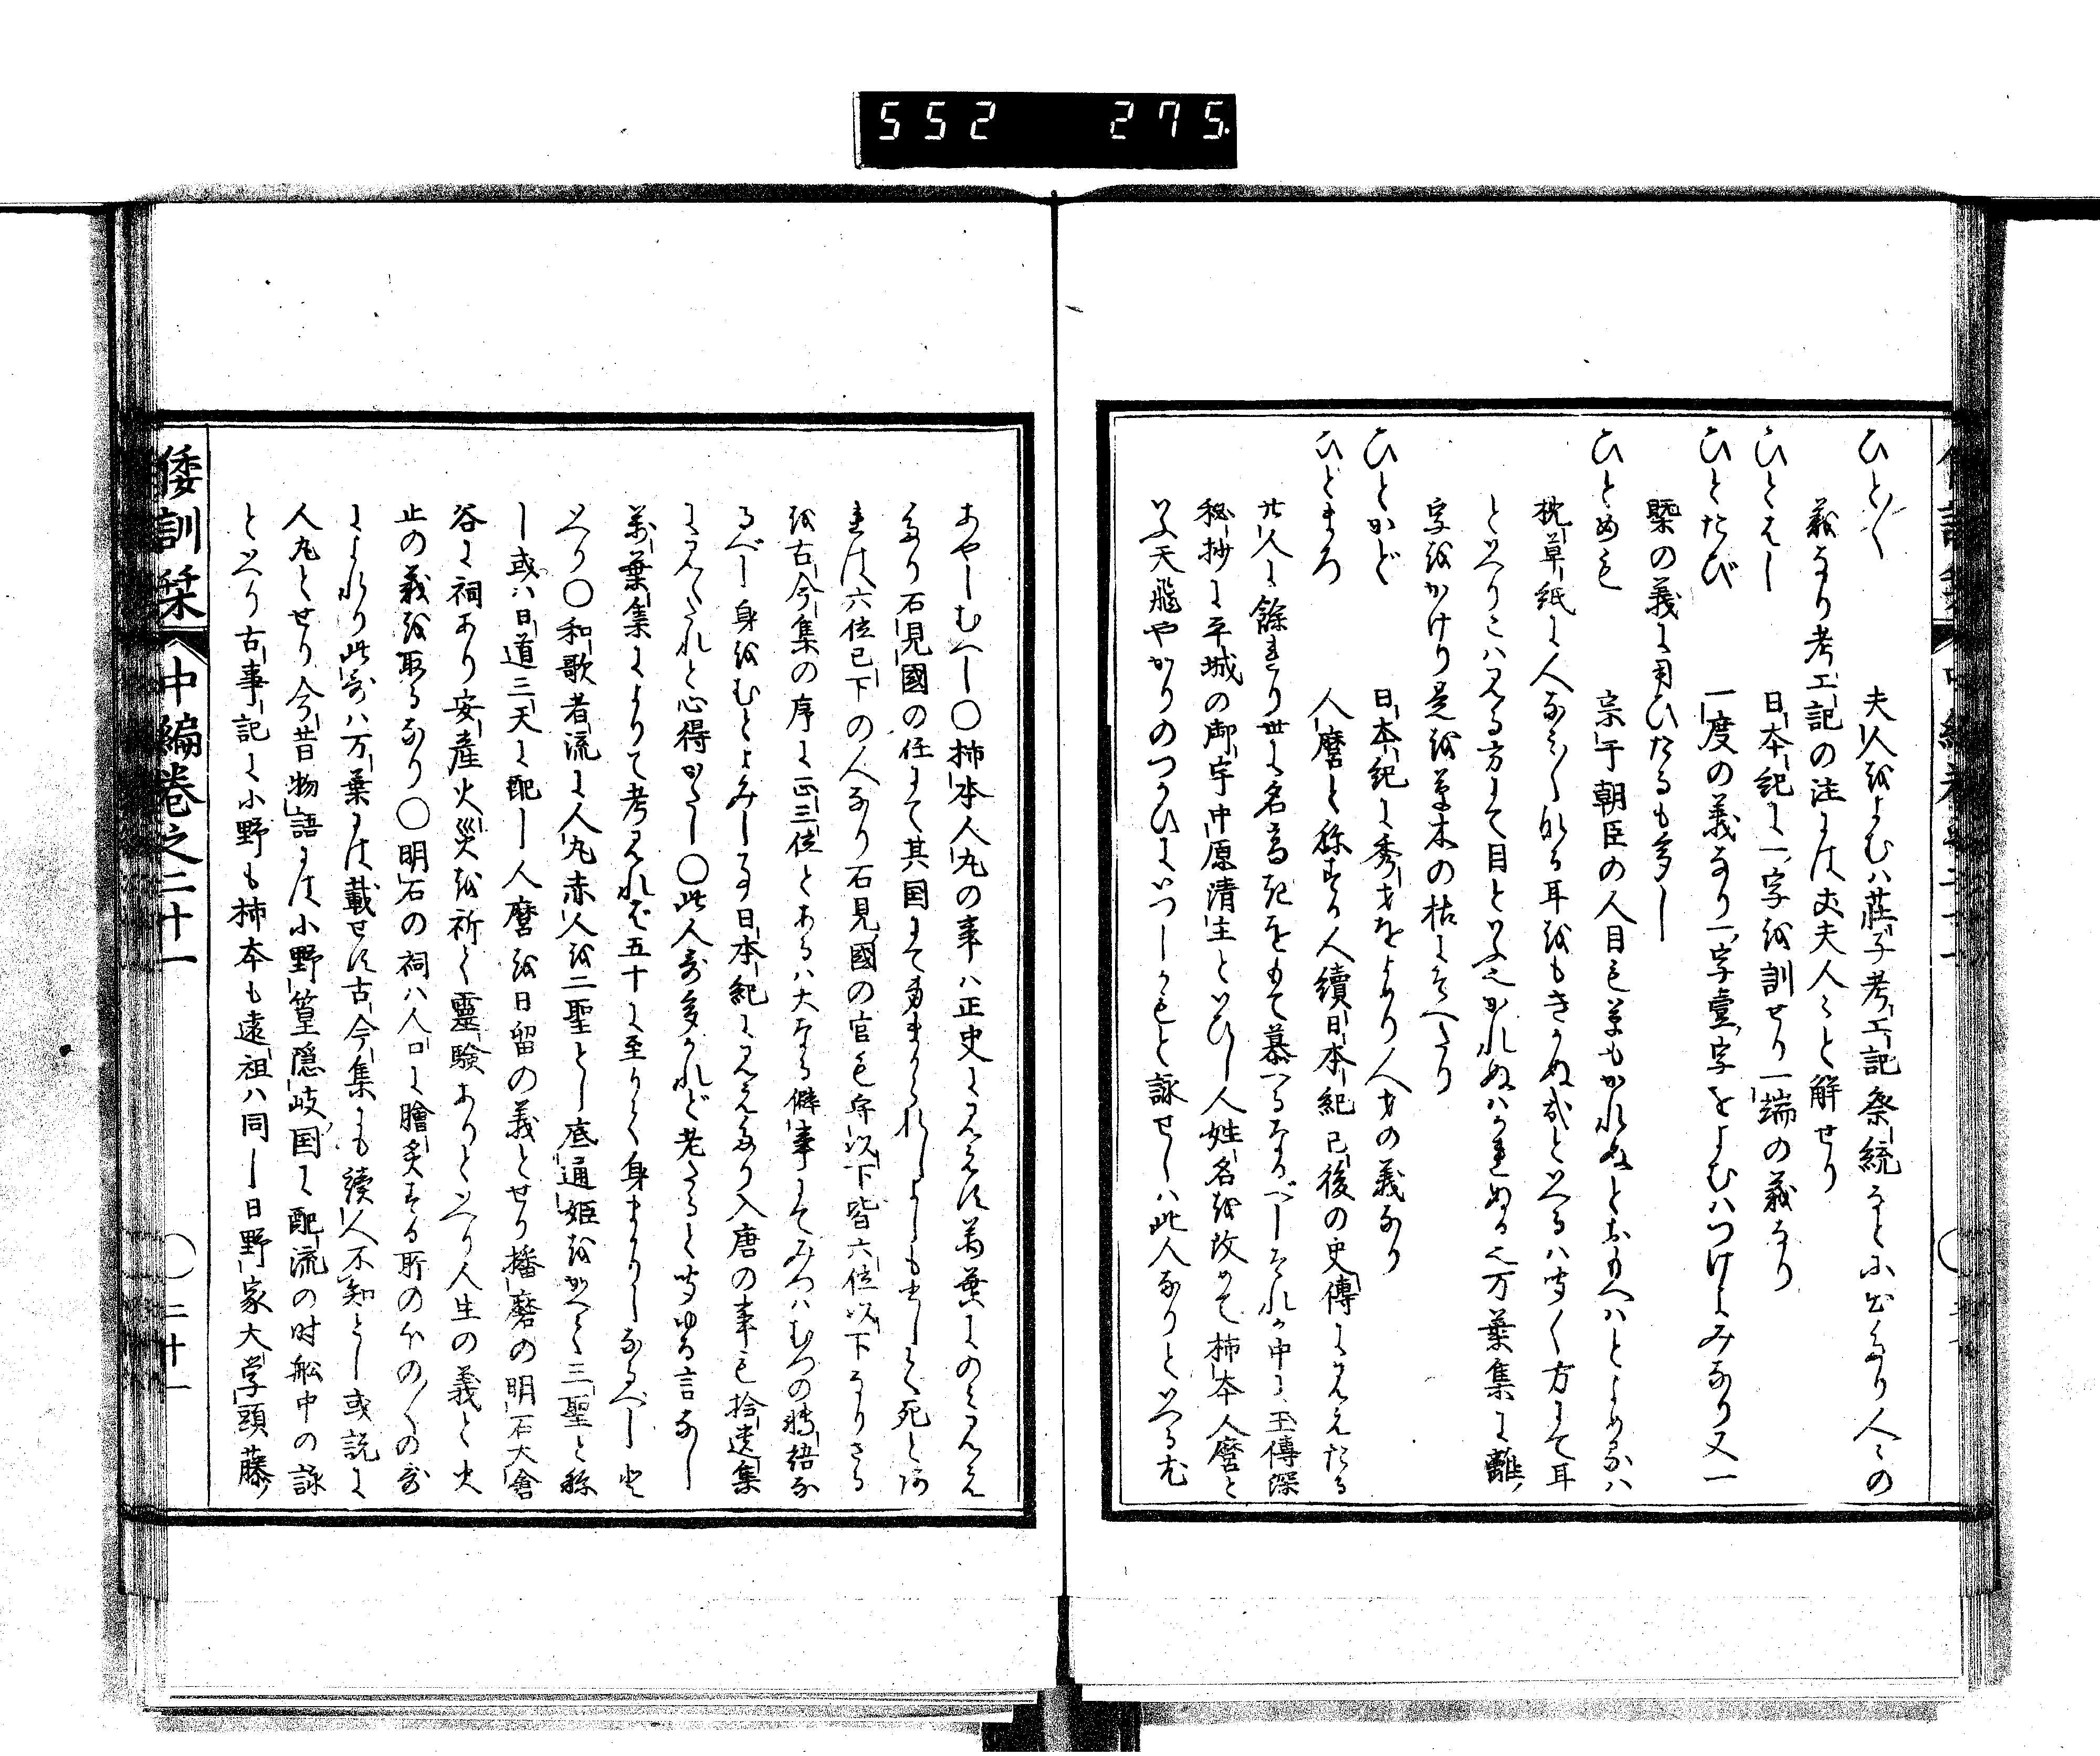 552 275
ひと〴〵 夫人をよむハ莊子考工記祭統なとに出たり人々の
義なり考工記の注には夫夫人々と解せり
ひとはし 日本紀に一字を訓せり一端の義なり
ひとたび 一度の義なり一字壹字をよむハつけよみなり又一
槩の義に用ひたるも多し
ひとめも 宗于朝臣の人目も草もかれぬとおもへハとよめるハ
枕草紙に人ならハ耳をもきかぬ成といへるハ聞く方にて耳
といへりこハみる方にて目といふ也かれぬハ
万葉集に離
字をかけり是を草木の枯にそへたり
ひとかど 日本紀に秀才をよめり人才の義なり
ひとまろ 人麿と稱する人續日本紀已後の史傳にみえたる
廿人に餘れり世に名高きをもて慕へるなるべしそれか中に玉傳深
秘抄に平城の御宇中原清主といひし人姓名を改めて柿本人麿と
いふ天飛やかりのつかひにいつしかもと詠せしハ此人なりといへるも
あやしむへし〇柿本人丸の事ハ正史にみえす萬葉にのミみえ
たり石見國の任にて其国にて身まかられしよしも出しかく死とあ
れは六位已下の人なり石見國の官も守以下皆六位以下なりさる
を古今集の序に正三位とあるハ大なる僻事にてみつハむつの轉語な
るべし身をむとよみし事日本紀にみえたり入唐の事も拾遺集
にみえたれと心得かたし〇此人哥多かれど老たると聞ゆる言なし
萬葉集によりて考みれバ五十に至りて身まかりしなるべしと
いへり〇和歌者流に人丸赤人を二聖とし衣通姫をかへて三聖と稱
し或ハ日道三天に配し人麿を日留の義とせり播磨の明石大倉
谷に祠あり安産火災を祈て靈験ありといへり人生の義と火
止の義を取るなり〇明石の祠ハ人口に膾炙する所のほの〴〵の哥
によれり此哥ハ万葉には載せす古今集にも續人不知とし或説に
人丸とせり今昔物語には小野篁隠岐国に配流の时船中の詠
といへり古事記に小野も柿本も遠祖ハ同し日野家大学頭藤
倭訓栞 中編卷之二十一 〇二十一